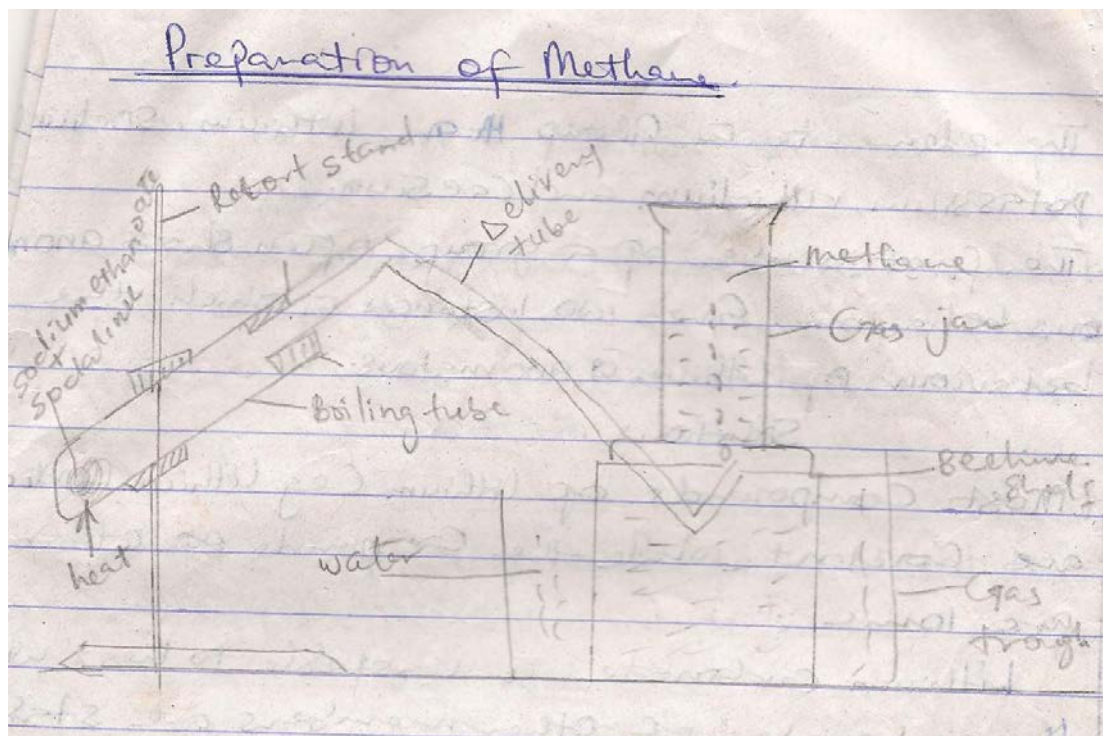 Preparation of Methane.
Retort stand
Delivery
tube
sodium ethanoate
+
Sodalime
methane
Gas jar
Boiling tube
Beehive
heat
water
Gas
trough